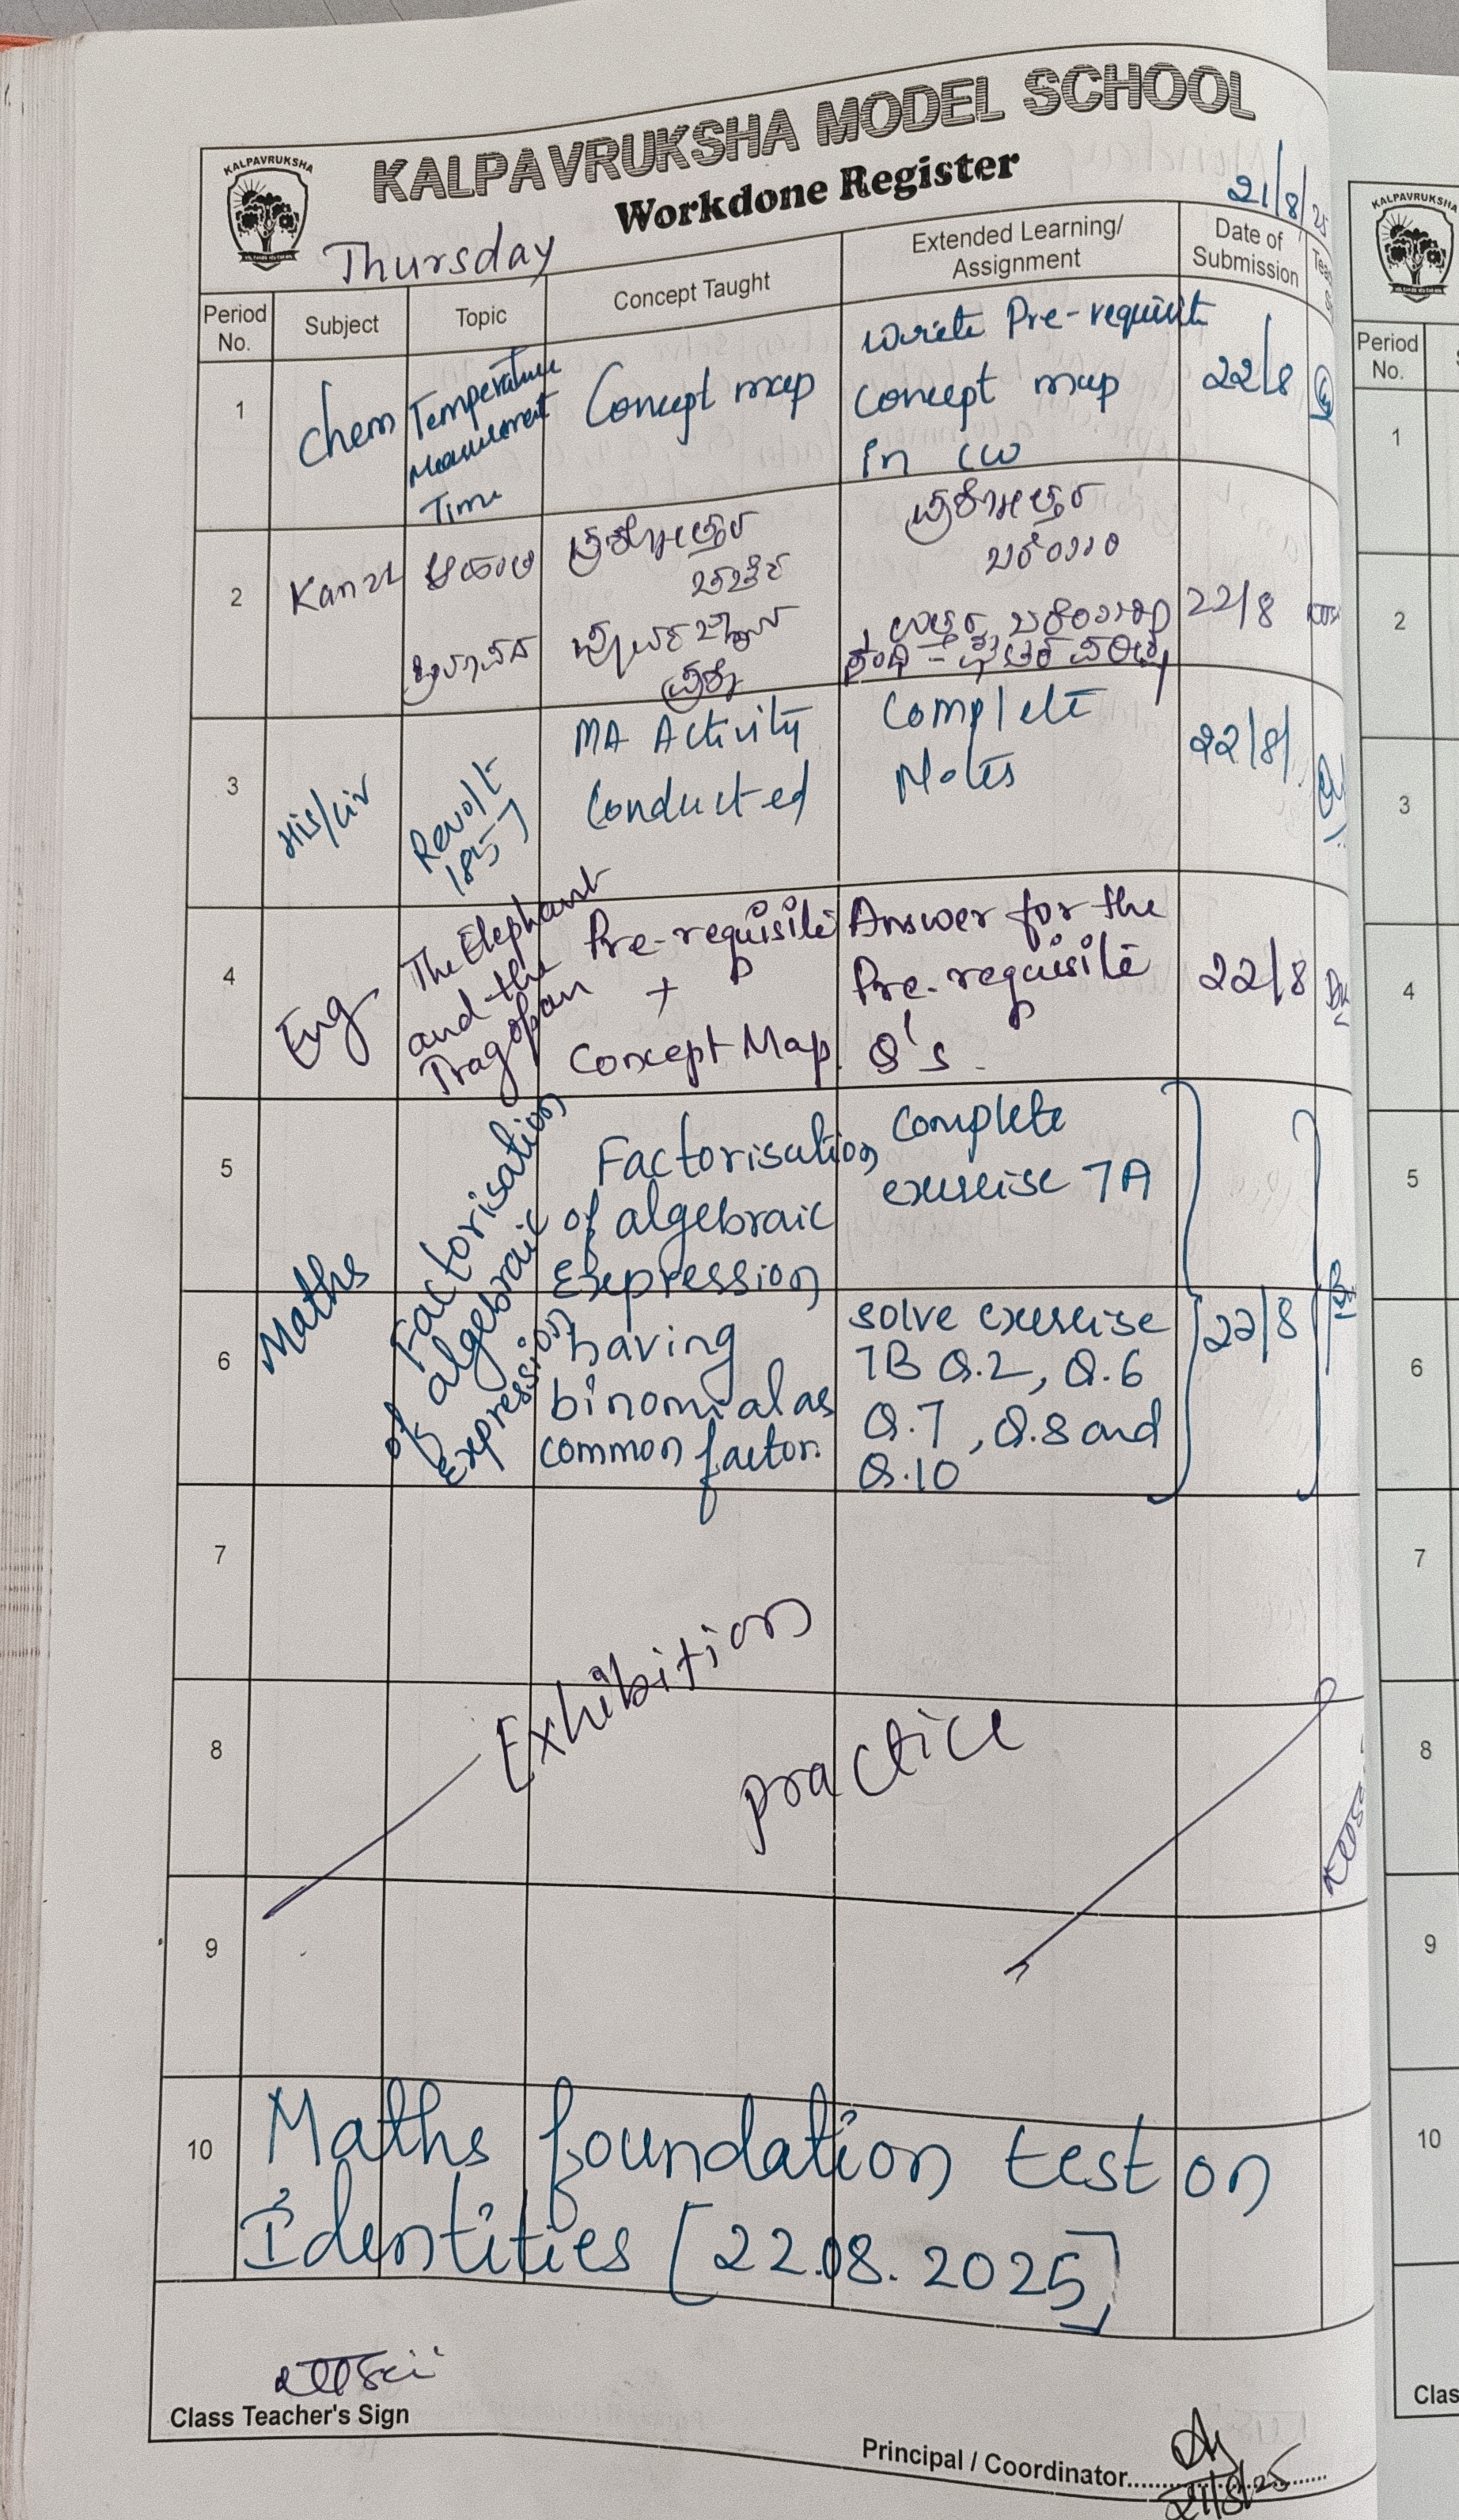 KALPAVRUKSHA MODEL SCHOOL
KALPAVRUKSHA
Workdone Register
21/8/25
Thursday
Period No.
Subject
Topic
Concept Taught
Extended Learning/
Assignment
Date of
Submission
1
Chem
Temperature
Measurement
Time
Concept map
write Pre-requisit
Concept map
in CW
22/8
2
Kan
22/8
3
His/Civ
Revolt
1857
MA Activity
Conducted
Complete
Notes
22/8/
4
Eng
The Elephant
and the
Tragopan
Pre-requisite
+
Concept Map.
Answer for the
Pre-requisite
Q's.
22/8
5
6
Maths
Factorisation
of algebraic
Expression
Factorisation
of algebraic
Expression
having
binomial as
common factor.
complete
exercise 7A
solve exercise
7B Q.2, Q.6
Q.7, Q.8 and
Q.10
22/8
7
8
Exhibition
practice
9
10
Maths foundation test on
Identities [22.08.2025]
Class Teacher's Sign
Principal / Coordinator
21/8/25
KALPAVRUKSHA
Period
No.
1
2
3
4
5
6
7
8
9
10
Clas